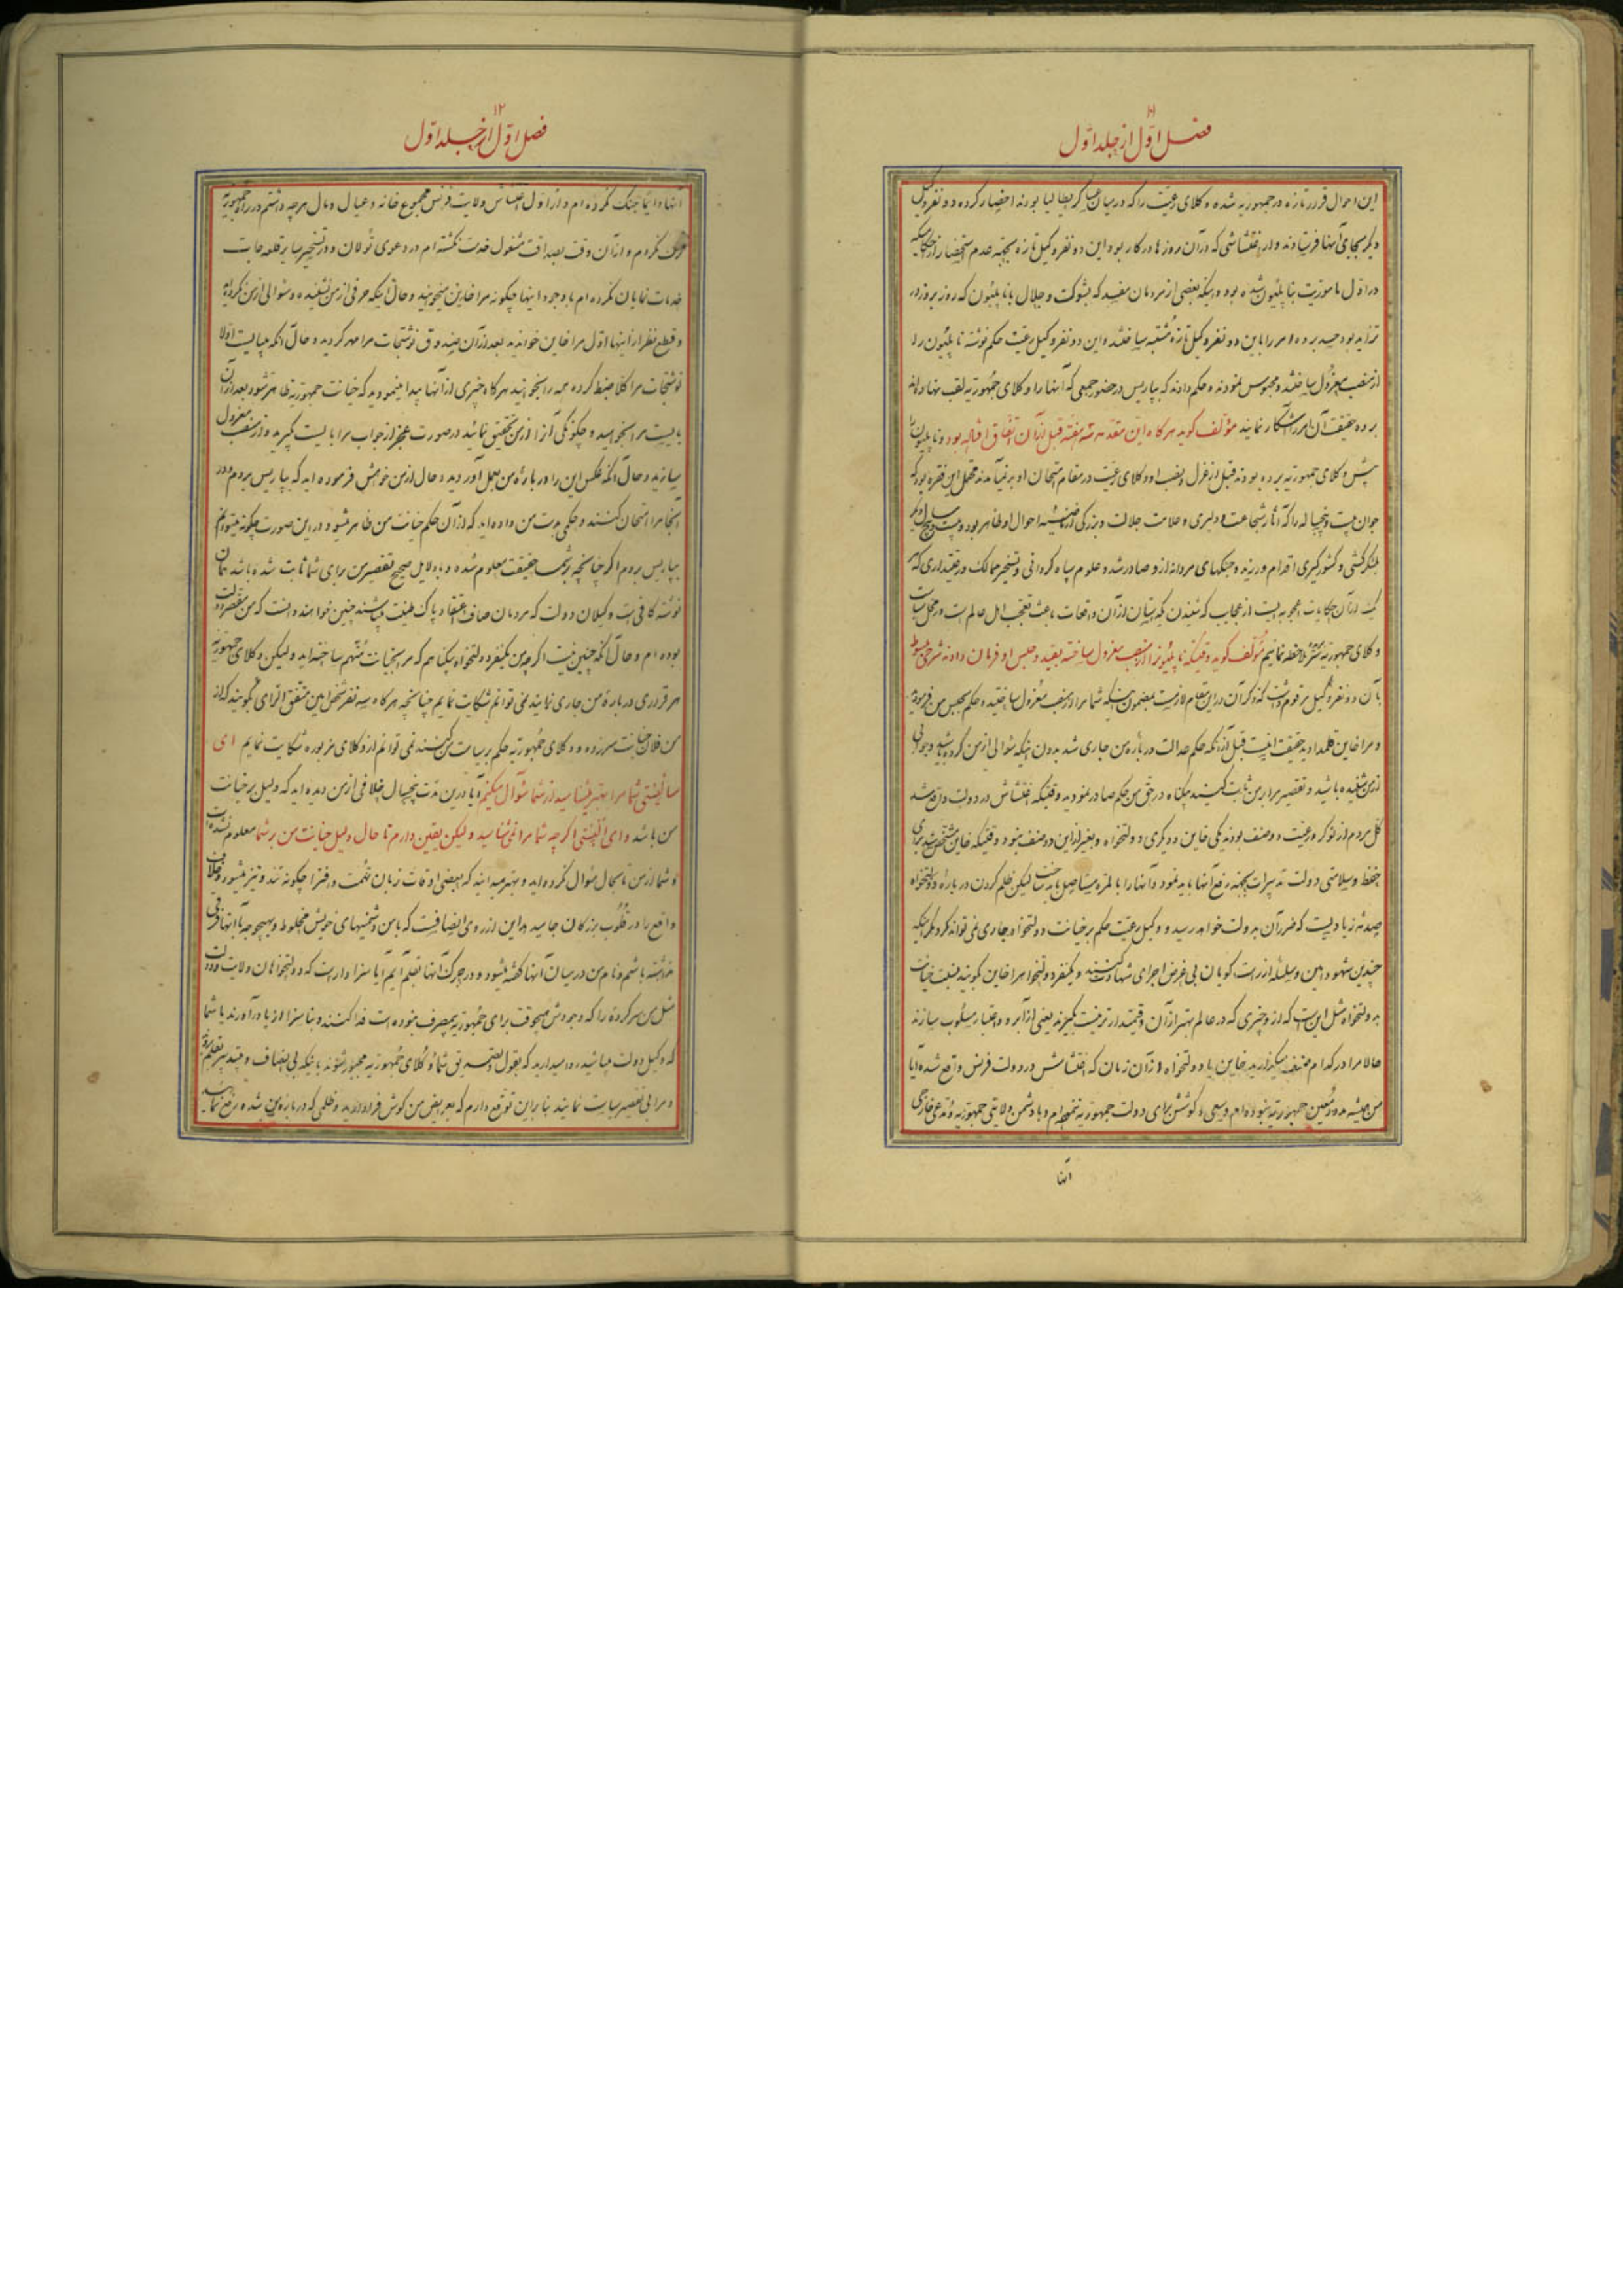 ۱۱
فصل اوّل از جلد اوّل
این احوال قرار تازه در جمهوریه شده وکلای رعیّت را که در میان عساکر ایطالیا بودند احضار کرده دو نفر وکیل
دیگر بجای آنها فرستادند و از اغتشاشی که در آن روزها در کار بود این دو نفر وکیل تازه بجهة عدم استحضار از احکامیکه
در اوّل ماموریت بناپلیون شده بود و اینکه بعضی از مردمان مفسد که بشوکت و جلال ناپلیون که روز بروز در
تزاید بود حسد برده امر را باین دو نفر وکیل تازه مشتبه ساختند و این دو نفر وکیل رعیّت حکم نوشته ناپلیون را
از منصب معزول ساختند و محبوس نمودند و حکم دادند که بپاریس در حضور جمعی که آنها را وکلای جمهوریه لقب نهاده اند
برده حقیقت آن امر را آشکار نمایند مؤلف گوید هرگاه این مقدمه سه هفته قبل از آن اتفاق افتاده بود و ناپلیون را
پیش وکلای جمهوریه برده بودند قبل از عزل منصب او وکلای رعیّت در مقام امتحان او برنمی آمدند محتمل این فقره بود که
جوان بیست و پنج ساله را که آثار شجاعت و دلیری و علامت جلالت و بزرگی از ناصیه احوال او ظاهر بود
لشکرکشی و کشورگیری اقدام ورزیده و جنگهای مردانه از او صادر شد و علوم سپاه گردانی و تسخیر ممالک و رعیّت داری که هر
یک از آن حکایات اعجوبه ایست از عجایب که شنیدن بلکه بیان از آن واقعات باعث تعجب اهل عالم است در محل سیاست
وکلای جمهوریه ملاحظه نمایم مؤلف گوید وقتیکه ناپلیون را از منصب معزول ساخته بقید و حبس او فرمان دادند شرحی مبسوط
بآن دو نفر وکیل مرقوم داشت که ذکر آن در این مقام لازمست بمضمون اینکه شما مرا از منصب معزول ساختید و حکم بحبس من فرمودید
و مرا خاین قلمداد حقیقت اینست قبل از آنکه حکم عدالت در باره من جاری شد بدون اینکه سئوالی از من کرده باشید و جوابی
از من شنیده باشید و تقصیر مرا بر من ثابت کنید در حق من حکم صادر نمودید وقتیکه اغتشاش در دولت واقع شد
کل مردم از نوکر و رعیّت دو صنف بودند یکی خاین و دیگری دولتخواه و بغیر از این دو صنف نبود وقتیکه خاین مشخص شد برای
حفظ و سلامتی دولت تدبیرات بجهة رفع آنها باید نمود و آنها را بالمره مستاصل باید ساخت لیکن ظلم کردن در باره دولتخواه
صدمه زیادیست که ضرر آن بدولت خواهد رسید و وکیل رعیّت حکم بر خیانت دولتخواه جاری نمی تواند کرد مگر اینکه
چندین شهود امین و سلسله از راست گویان بی غرض اجرای شهادت کنند و یکنفر دولتخواه را خاین گویند نسبت خیانت
بدولتخواه مثل این است که از او چیزی که در عالم بهتر از آن و قیمتدارتر نیست بگیرند یعنی از آبرو و اعتبار مسلوب سازند
حالا مرا در کدام صنف میگذارید خاین یا دولتخواه از آن زمان که اغتشاش در دولت فرنس واقع شده آیا
من همیشه مدد و معین جمهوریه نبوده ام و سعی و کوشش برای دولت جمهوریه ننموده ام و با دشمن ولایتی جمهوریه و مدعی خارجی
آنها
۱۲
فصل اوّل از جلد اوّل
آنها دایما جنگ نکرده ام و از اوّل اغتشاش ولایت فرنس مجموع خانه و عیال و مال هرچه داشتم در راه جمهوریه
صرف نکردم و از آن وقت بصداقت مشغول خدمت نگشته ام در دعوای تولان و در تسخیر سایر قلعه جات
خدمات نمایان نکرده ام با وجود اینها چگونه مرا خاین میخوانید و حال اینکه حرفی از من نشنیده و سئوالی از من نکرده اید
و قطع نظر از اینها اوّل مرا خاین خواندید بعد از آن صندوق نوشتجات مرا مهر کردید و حال آنکه میبایست اولا
نوشتجات مرا کلا ضبط کرده همه را بخوانید هرگاه چیزی از آنها پیدا مینمودید که خیانت جمهوریه ظاهر شود بعد از آن
بایست مرا بخواهید و چگونگی آنرا از من تحقیق نمائید در صورت عجز از جواب مرا بایست گیرید و از منصب معزول
سازید و حال آنکه عکس این را در باره من بعمل آوردید و حال از من خواهش فرموده اید که بپاریس بروم و در
آنجا مرا امتحان کنند و حکمی بدست من داده اید که از آن حکم خیانت من ظاهر میشود و در این صورت چگونه میتوانم
بپاریس بروم اگر چنانچه بر شما حقیقت معلوم شده و بدلایل صحیح تقصیر من برای شما ثابت شده باشد همان
نوشته کافی است وکیلان دولت که مردمان صاف اعتقاد پاک طینت میباشند چنین خواهند دانست که من مقصر دولت
بوده ام و حال آنکه چنین نیست اگرچه من یکنفر دولتخواه بیگناهم که مرا بخیانت متهم ساخته اید ولیکن وکلای جمهوریه
هر قراری در باره من جاری نمایند نمی توانم شکایت نمایم چنانچه هرگاه سه نفر شخص امین متفق الرای بگویند که از
من فلان خیانت سر زده و وکلای جمهوریه حکم بر سیاست من کنند نمی توانم از وکلای مزبوره شکایت نمایم ای
سالیستی شما مرا بهتر میشناسید از شما سئوال میکنم آیا در این مدّت پنجسال خلافی از من دیده اید که دلیل بر خیانت
من باشد و ای البیتی اگرچه شما مرا نمی شناسید ولیکن یقین دارم تا حال دلیل خیانت من بر شما معلوم نشده است
و شما از من تا بحال سئوال نکرده اید و بهتر میدانید که بعضی اوقات زبان تهمت و افترا چگونه تند و تیز میشود و خلاف
واقع را در قلوب بزرگان جا میدهد این از روی انصافست که با من دشمنیهای خویش مخلوط و بهیچوجه با آنها فرقی
نداشته باشم و نام من در میان آنها گفته میشود و در جرگ آنها بقلم آیم آیا سزاوار است که دولتخواهان ولایت دوست
مثل من سرکرده را که وجودش هیچوقت برای جمهوریه بیمصرف نبوده است فدا کنند و بناسزا از پا درآورند یا شما
که وکیل دولت میباشید روا میدارید که بقول و تصدیق شما وکلای جمهوریه مجبور شوند باینکه بی انصاف و بی تدبیر بقلم روند
و مرا بی تقصیر سیاست نمایند بنابراین توقع دارم که بعرایض من گوش فرا دارید و ظلمی که در باره من شده رفع نمائید